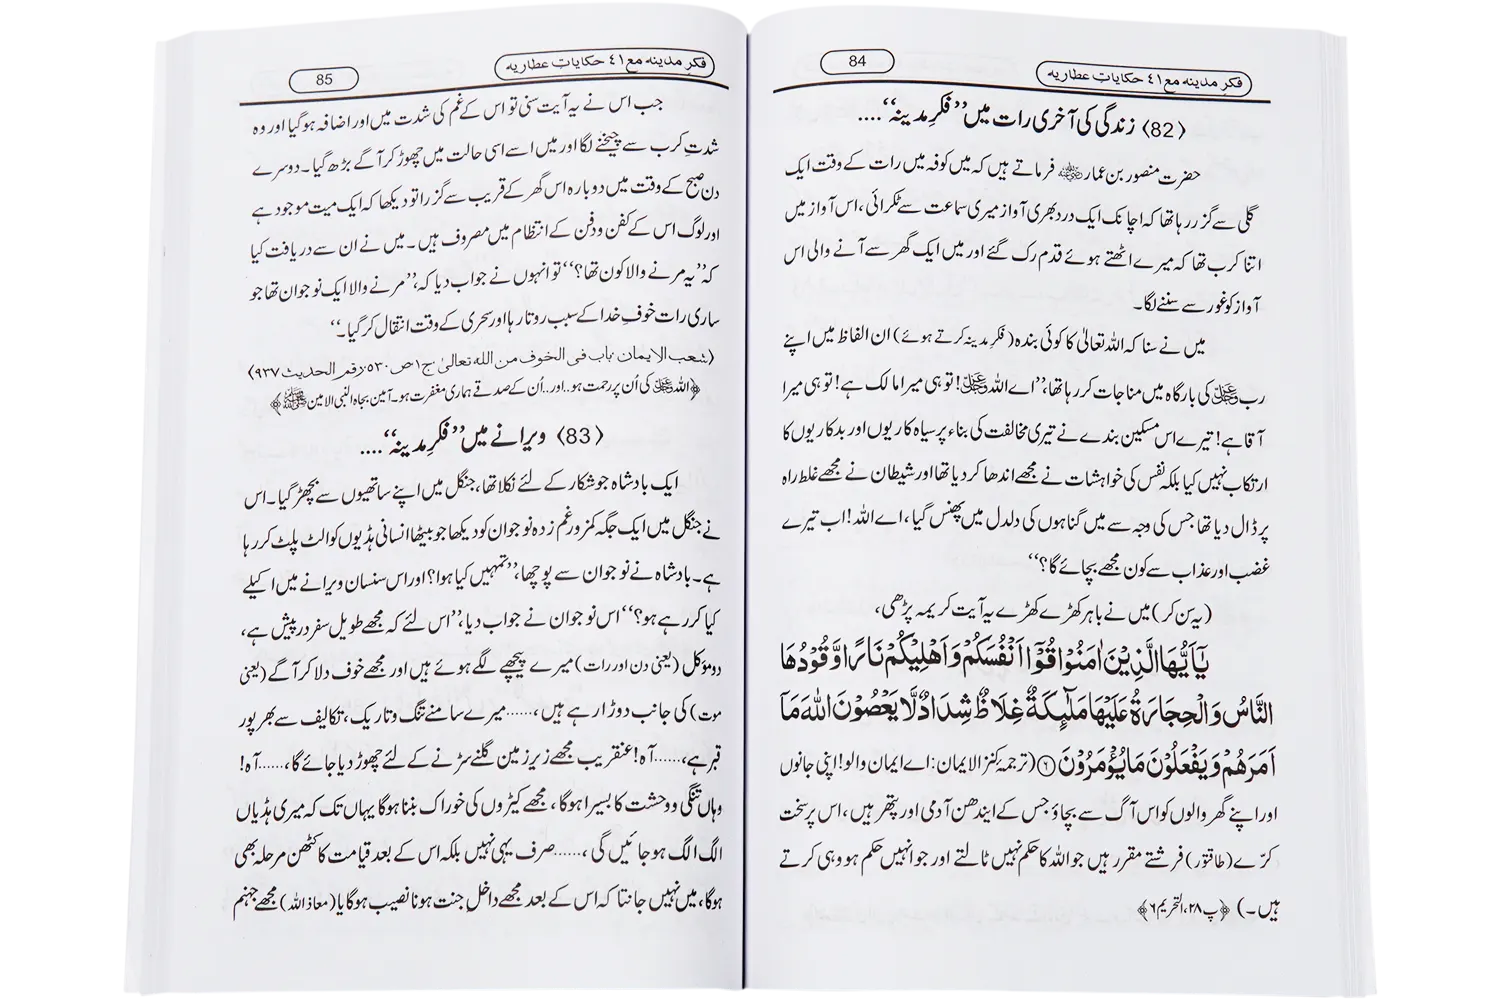 84
فکرِ مدینہ مع ٤١ حکایاتِ عطاریہ
﴿82﴾ زندگی کی آخری رات میں ’’فکرِ مدینہ‘‘ ....
حضرت منصور بن عمار رحمۃ اللہ علیہ فرماتے ہیں کہ میں کوفہ میں رات کے وقت ایک
گلی سے گزر رہا تھا کہ اچانک ایک درد بھری آواز میری سماعت سے ٹکرائی ، اس آواز میں
اتنا کرب تھا کہ میرے اٹھتے ہوئے قدم رک گئے اور میں ایک گھر سے آنے والی اس
آواز کو غور سے سننے لگا۔
میں نے سنا کہ اللہ تعالیٰ کا کوئی بندہ (فکرِ مدینہ کرتے ہوئے) ان الفاظ میں اپنے
رب عزوجل کی بارگاہ میں مناجات کر رہا تھا، ’’اے اللہ عزوجل! تو ہی میرا مالک ہے! تو ہی میرا
آقا ہے! تیرے اس مسکین بندے نے تیری مخالفت کی بناء پر سیاہ کاریوں اور بدکاریوں کا
ارتکاب نہیں کیا بلکہ نفس کی خواہشات نے مجھے اندھا کر دیا تھا اور شیطان نے مجھے غلط راہ
پر ڈال دیا تھا جس کی وجہ سے میں گناہوں کی دلدل میں پھنس گیا ، اے اللہ! اب تیرے
غضب اور عذاب سے کون مجھے بچائے گا؟‘‘
(یہ سن کر) میں نے باہر کھڑے کھڑے یہ آیت کریمہ پڑھی،
يٰٓاَيُّهَا الَّذِيْنَ اٰمَنُوْا قُوْٓا اَنْفُسَكُمْ وَاَهْلِيْكُمْ نَارًا وَّقُوْدُهَا
النَّاسُ وَالْحِجَارَةُ عَلَيْهَا مَلٰٓئِكَةٌ غِلَاظٌ شِدَادٌ لَّا يَعْصُوْنَ اللّٰهَ مَآ
اَمَرَهُمْ وَيَفْعَلُوْنَ مَا يُؤْمَرُوْنَ ﴿٦﴾ (ترجمۂ کنز الایمان : اے ایمان والو! اپنی جانوں
اور اپنے گھر والوں کو اس آگ سے بچاؤ جس کے ایندھن آدمی اور پتھر ہیں ، اس پر سخت
کرّے (طاقتور) فرشتے مقرر ہیں جو اللہ کا حکم نہیں ٹالتے اور جو انہیں حکم ہو وہی کرتے
ہیں۔) ﴿پ ۲۸، التحریم ۶﴾
85
فکرِ مدینہ مع ٤١ حکایاتِ عطاریہ
جب اس نے یہ آیت سنی تو اس کے غم کی شدت میں اور اضافہ ہو گیا اور وہ
شدتِ کرب سے چیخنے لگا اور میں اسے اسی حالت میں چھوڑ کر آگے بڑھ گیا۔ دوسرے
دن صبح کے وقت میں دوبارہ اس گھر کے قریب سے گزرا تو دیکھا کہ ایک میت موجود ہے
اور لوگ اس کے کفن و دفن کے انتظام میں مصروف ہیں۔ میں نے ان سے دریافت کیا
کہ ’’یہ مرنے والا کون تھا؟‘‘ تو انہوں نے جواب دیا کہ، ’’مرنے والا ایک نوجوان تھا جو
ساری رات خوفِ خدا کے سبب روتا رہا اور سحری کے وقت انتقال کر گیا۔‘‘
(شعب الایمان باب فی الخوف من الله تعالیٰ ج۱ ص ۵۳۰ رقم الحدیث ۹۳۷)
﴿اللہ عزوجل کی اُن پر رحمت ہو..اور..اُن کے صدقے ہماری مغفرت ہو۔ آمین بجاہ النبی الامین ﷺ﴾
﴿83﴾ ویرانے میں ’’فکرِ مدینہ‘‘ ....
ایک بادشاہ جو شکار کے لئے نکلا تھا، جنگل میں اپنے ساتھیوں سے بچھڑ گیا۔ اس
نے جنگل میں ایک جگہ کمزور غم زدہ نوجوان کو دیکھا جو بیٹھا انسانی ہڈیوں کو الٹ پلٹ کر رہا
ہے۔ بادشاہ نے نوجوان سے پوچھا، ’’تمہیں کیا ہوا؟ اور اس سنسان ویرانے میں اکیلے
کیا کر رہے ہو؟‘‘ اس نوجوان نے جواب دیا، ’’اس لئے کہ مجھے طویل سفر درپیش ہے،
دو مؤکل (یعنی دن اور رات) میرے پیچھے لگے ہوئے ہیں اور مجھے خوف دلا کر آگے (یعنی
موت) کی جانب دوڑا رہے ہیں، ......میرے سامنے تنگ و تاریک ، تکالیف سے بھرپور
قبر ہے، ......آہ! عنقریب مجھے زیرِ زمین گلنے سڑنے کے لئے چھوڑ دیا جائے گا، ......آہ!
وہاں تنگی و وحشت کا بسیرا ہوگا ، مجھے کیڑوں کی خوراک بننا ہوگا یہاں تک کہ میری ہڈیاں
الگ الگ ہو جائیں گی ، ......صرف یہی نہیں بلکہ اس کے بعد قیامت کا کٹھن مرحلہ بھی
ہوگا، میں نہیں جانتا کہ اس کے بعد مجھے داخلِ جنت ہونا نصیب ہوگا یا (معاذ اللہ) مجھے جہنم